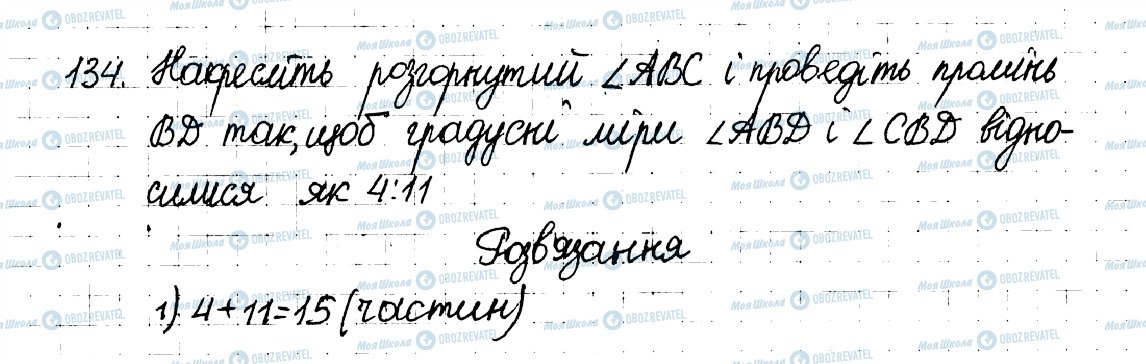 134. Накресліть розгорнутий ∠ABC і проведіть промінь
BD так, щоб градусні міри ∠ABD і ∠CBD відно-
силися як 4:11
Розв'язання
1) 4+11=15 (частин)